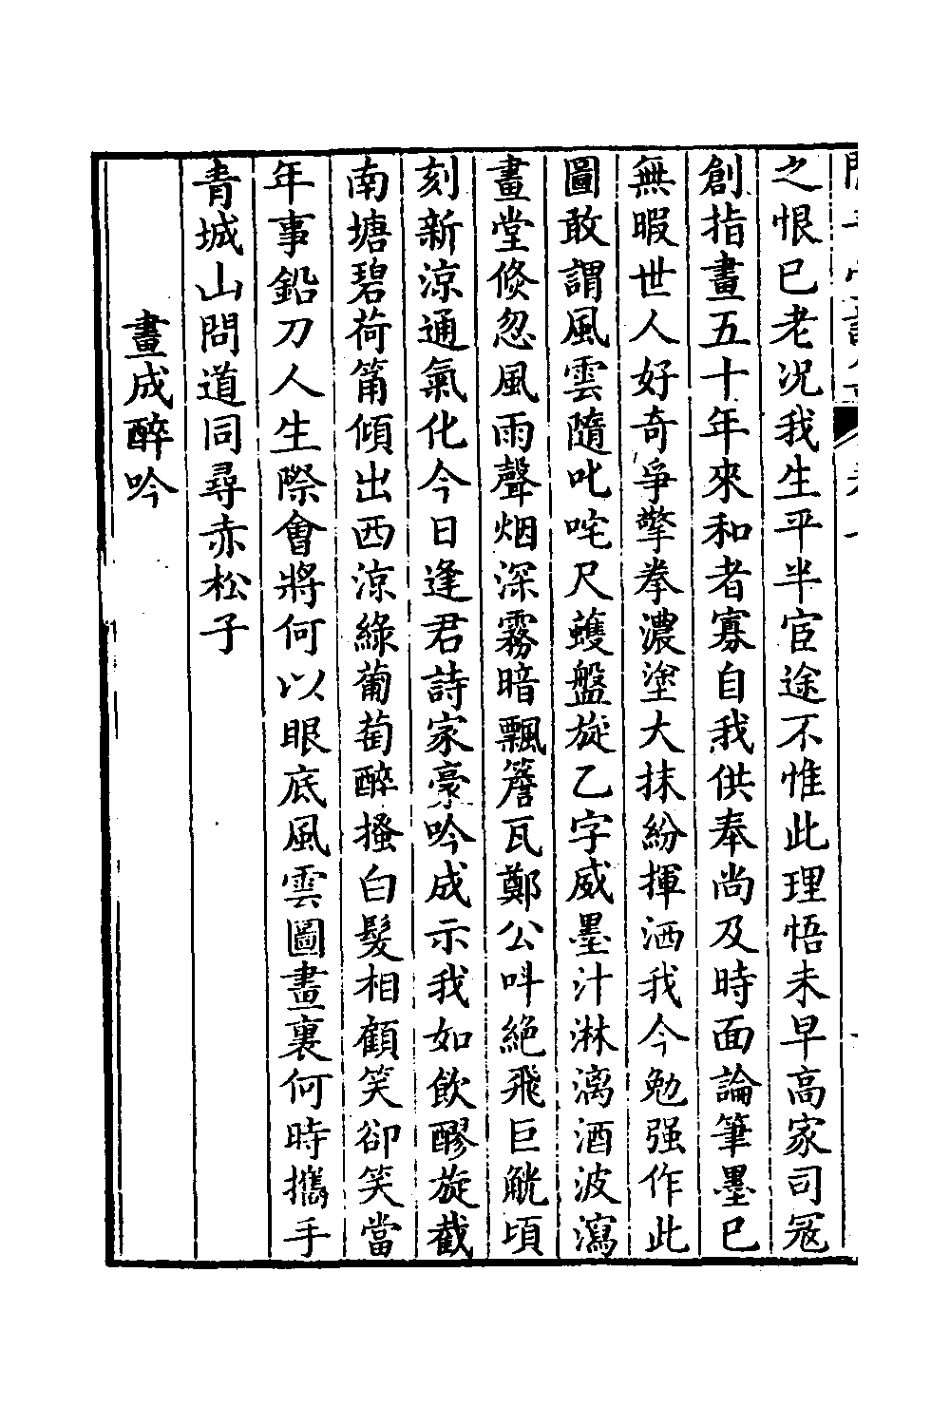 之恨已老况我生平半宦途不惟此理悟未早高家司冦
創指畫五十年來和者寡自我供奉尚及時面論筆墨已
無暇世人好奇爭擎拳濃塗大抹紛揮洒我今勉强作此
圖敢謂風雲隨叱咤尺蠖盤旋乙字威墨汁淋漓酒波瀉
畫堂倐忽風雨聲烟深霧暗飄簷瓦鄭公呌絕飛巨觥頃
刻新涼通氣化今日逢君詩家豪吟成示我如飲醪旋截
南塘碧荷筩傾出西涼綠葡萄醉搔白髮相顧笑卻笑當
年事鉛刀人生際會將何以眼底風雲圖畫裏何時攜手
青城山問道同尋赤松子
畫成醉吟